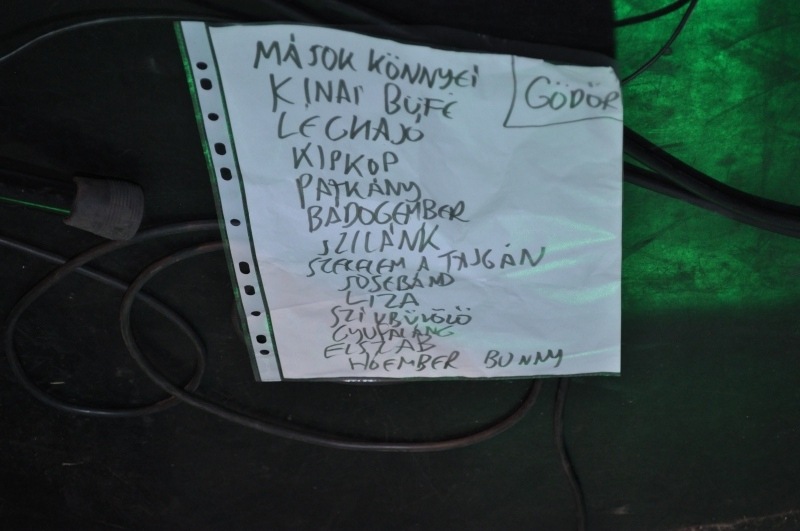 MÁSOK KÖNNYEI
GÖDÖR
KINAI BÜFÉ
LÉGHAJÓ
KIPKOP
PATKÁNY
BÁDOGEMBER
SZILÁNK
SZERELEM A TAJGÁN
JOSEBÁND
LIZA
GYUFALÁNG
ELSZÁB
HÓEMBER BUNNY